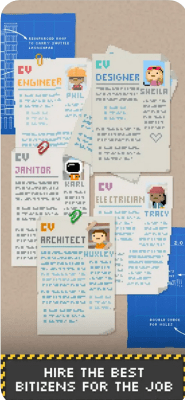 CV
ENGINEER
PHIL
CV
DESIGNER
SHEILA
CV
JANITOR
KARL
CV
ELECTRICIAN
TRACY
CV
ARCHITECT
HUXLEY
2.0
DOUBLE CHECK
FOR HOLES
HIRE THE BEST
BITIZENS FOR THE JOB